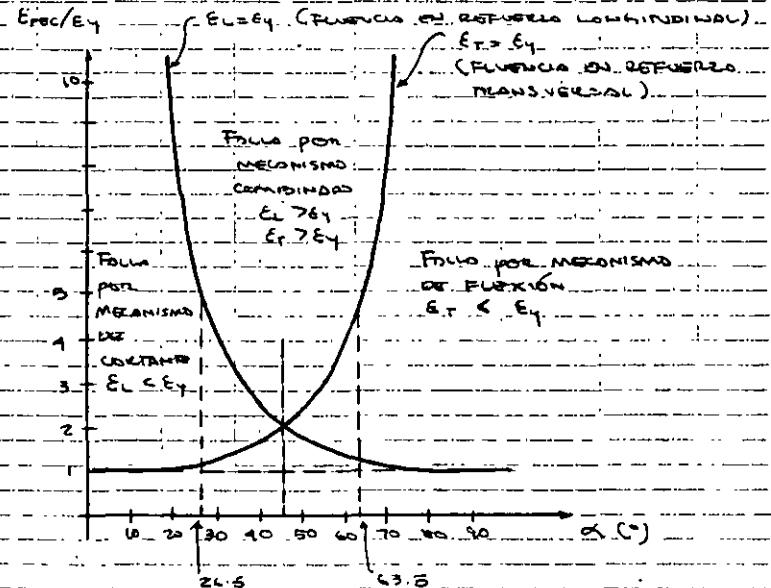 εPEC/εy
εL=εy (FLUENCIA EN REFUERZO LONGITUDINAL)
εT = εy
(FLUENCIA EN REFUERZO
TRANSVERSAL)
10
FALLA POR
MECANISMO
COMBINADO
εL > εy
εT > εy
FALLA
POR
MECANISMO
DE
CORTANTE
εL < εy
FALLA POR MECANISMO
DE FLEXIÓN
εT < εy
5
4
3
2
1
10 20 30 40 50 60 70 80 90
α (°)
26.5
63.5